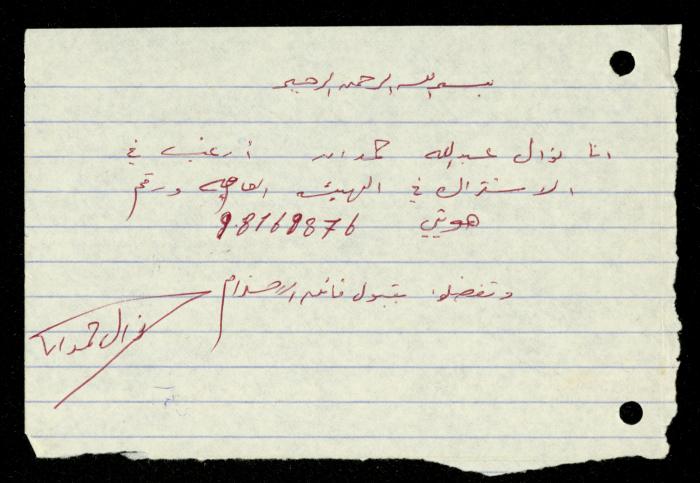 بسم الله الرحمن الرحيم
انا نوال عبدالله حمدان أرغب في
الاشتراك في الهيئة العامة ورقم
هويتي 98169876
وتفضلوا بقبول فائق الاحترام
نوال حمدان